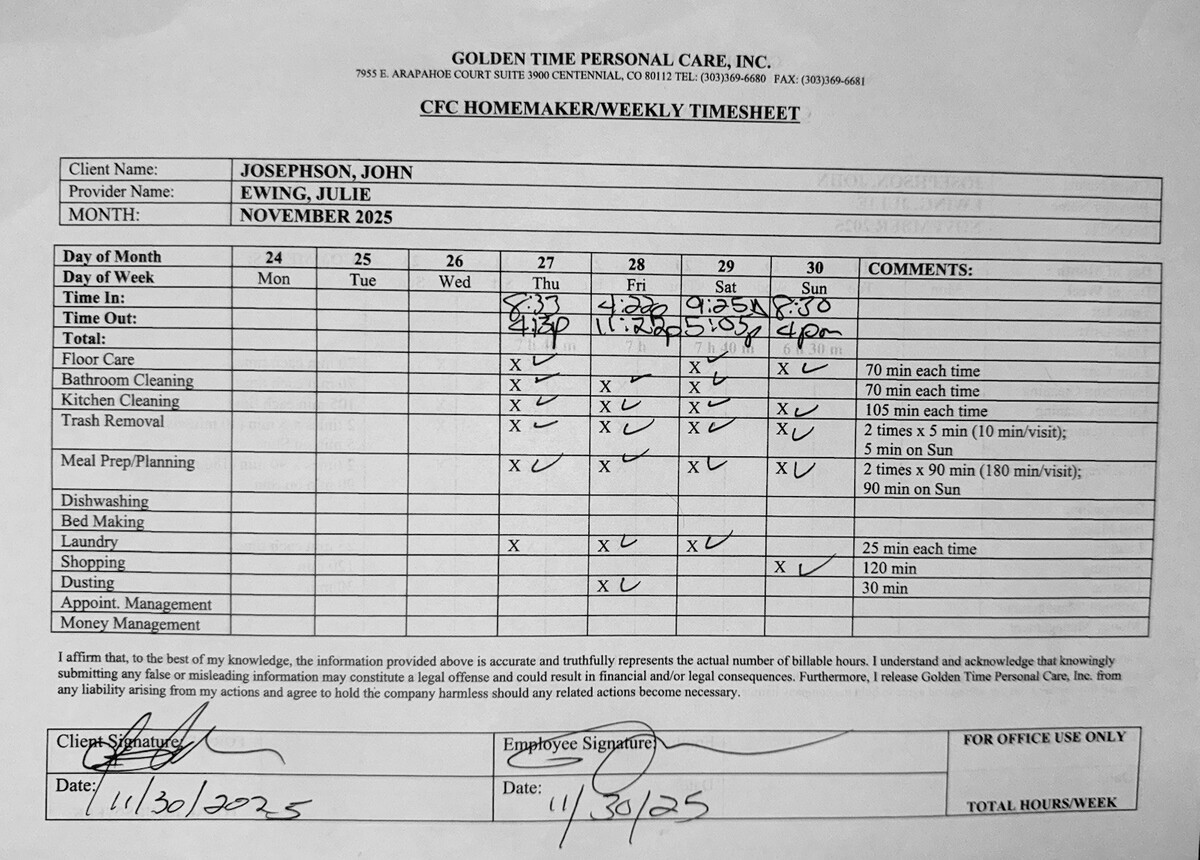 GOLDEN TIME PERSONAL CARE, INC.
7955 E. ARAPAHOE COURT SUITE 3900 CENTENNIAL, CO 80112 TEL: (303)369-6680 FAX: (303)369-6681
CFC HOMEMAKER/WEEKLY TIMESHEET
Client Name: JOSEPHSON, JOHN
Provider Name: EWING, JULIE
MONTH: NOVEMBER 2025
Day of Month 24 25 26 27 28 29 30 COMMENTS:
Day of Week Mon Tue Wed Thu Fri Sat Sun
Time In: 8:33 4:22p 9:25A 8:30
Time Out: 4:13p 11:22p 5:05p 4pm
Total: 7 h 40 m 7 h 7 h 40 m 6 h 30 m
Floor Care X ✓ X ✓ X ✓ 70 min each time
Bathroom Cleaning X ✓ X ✓ X ✓ 70 min each time
Kitchen Cleaning X ✓ X ✓ X ✓ X ✓ 105 min each time
Trash Removal X ✓ X ✓ X ✓ X ✓ 2 times x 5 min (10 min/visit);
5 min on Sun
Meal Prep/Planning X ✓ X ✓ X ✓ X ✓ 2 times x 90 min (180 min/visit);
90 min on Sun
Dishwashing
Bed Making
Laundry X X ✓ X ✓ 25 min each time
Shopping X ✓ 120 min
Dusting X ✓ 30 min
Appoint. Management
Money Management
I affirm that, to the best of my knowledge, the information provided above is accurate and truthfully represents the actual number of billable hours. I understand and acknowledge that knowingly
submitting any false or misleading information may constitute a legal offense and could result in financial and/or legal consequences. Furthermore, I release Golden Time Personal Care, Inc. from
any liability arising from my actions and agree to hold the company harmless should any related actions become necessary.
Client Signature: Employee Signature: FOR OFFICE USE ONLY
Date: 11/30/2025 Date: 11/30/25 TOTAL HOURS/WEEK